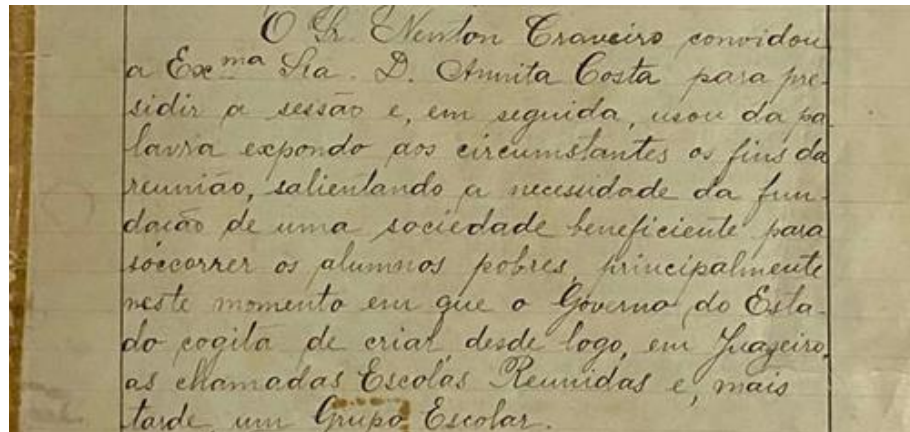 O Sr. Newton Craveiro convidou
a Exma Sra. D. Annita Costa para pre-
sidir a sessão e, em seguida, usou da pa
lavra expondo aos circumstantes os fins da
reunião, salientando a necessidade da fun-
dação de uma sociedade beneficiente para
soccorrer os alumnos pobres, principalmente
neste momento em que o Governo do Esta-
do cogita de criar desde logo, em Juazeiro,
as chamadas Escolas Reunidas e, mais
tarde um Grupo Escolar.